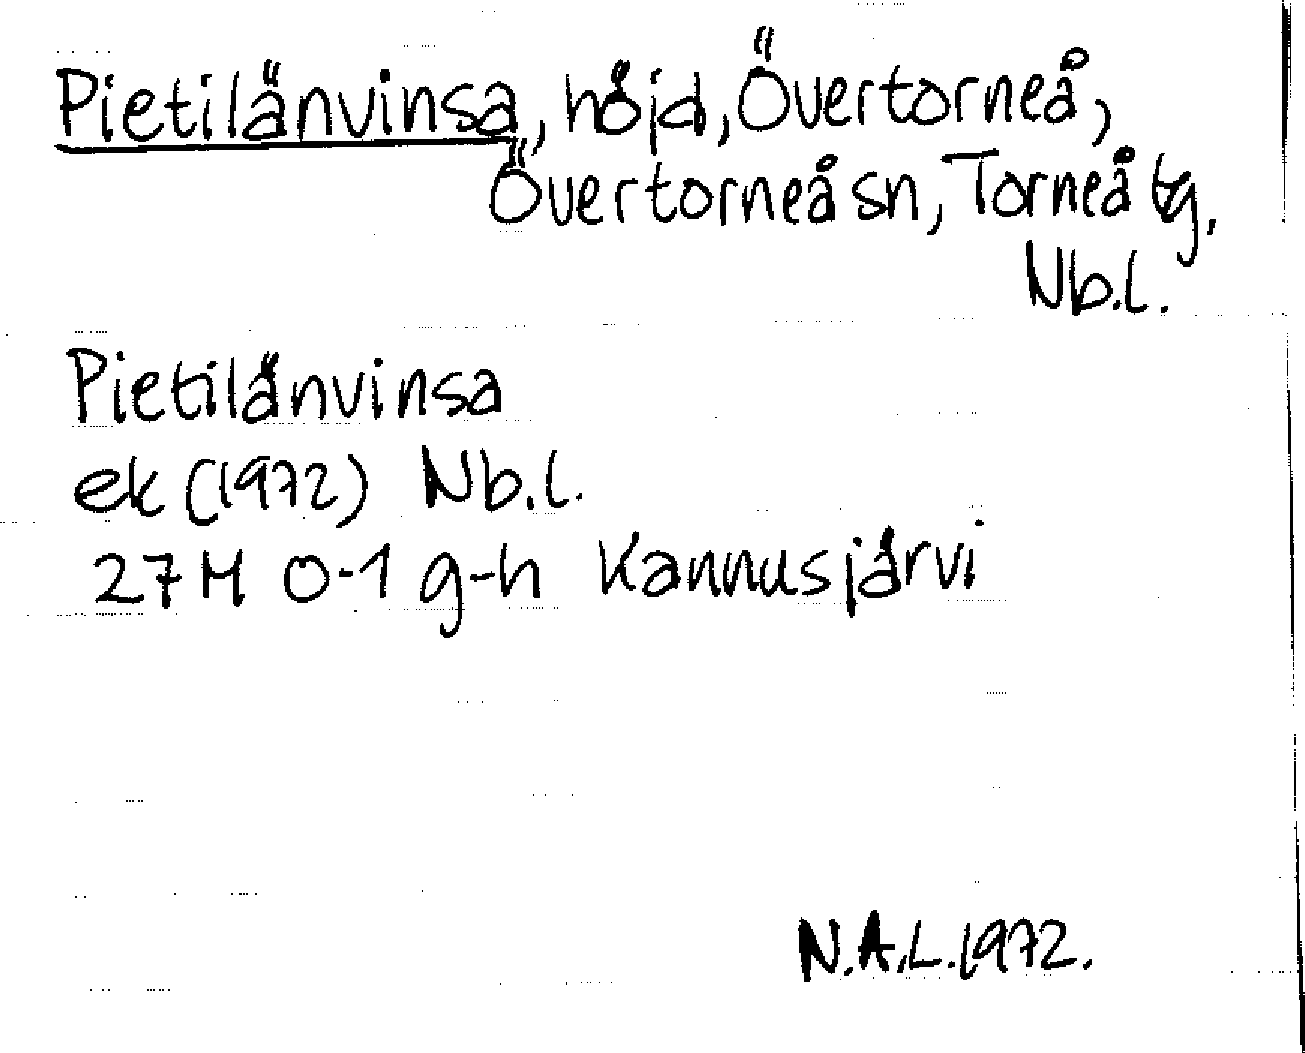 Pietilänvinsa, höjd, Övertorneå,
Övertorneå sn, Torneå tg,
Nb.l.
Pietilänvinsa
ek (1972) Nb.l.
27M 0-1 g-h Kannusjärvi
N.A.L. 1972.